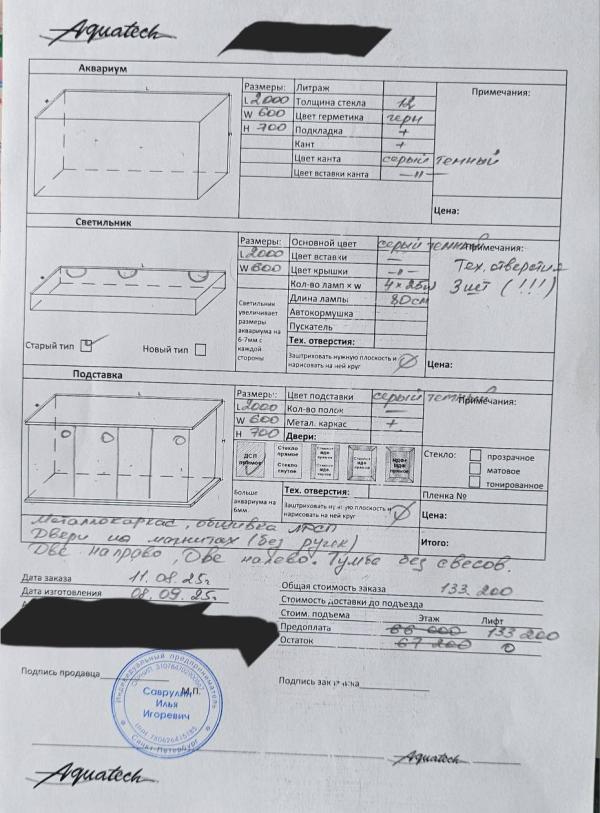 Aquatech
Аквариум
Размеры:
L 2000
W 600
H 700
Литраж
Толщина стекла 12
Цвет герметика черн
Подкладка +
Кант +
Цвет канта серый темный
Цвет вставки канта —"—
Примечания:
Цена:
Светильник
Размеры:
L 2000
W 600
Основной цвет серый темный
Цвет вставки —
Цвет крышки —"—
Кол-во ламп x w 4 x 25w
Длина лампы 80см
Автокормушка
Пускатель
Тех. отверстия:
Примечания:
Тех. отверстия
3 шт (!!!)
Светильник
увеличивает
размеры
аквариума на
6-7мм с
каждой
стороны
Старый тип
Новый тип
Заштриховать нужную плоскость и
нарисовать на ней круг
Цена:
Подставка
Размеры:
L 2000
W 600
H 700
Цвет подставки серый темный
Кол-во полок —
Метал. каркас +
Двери:
Примечания:
ДСП
прямое
Стекло
прямое
Стекло
гнутое
Стекло:
прозрачное
матовое
тонированное
Больше
аквариума на
6мм.
Тех. отверстия:
Пленка №
Заштриховать нужную плоскость и
нарисовать на ней круг
Цена:
Итого:
Металлокаркас, обшивка ЛДСП
Двери на магнитах (без ручек)
Две направо, Две налево. Тумба без свесов.
Дата заказа 11.08.25г
Дата изготовления 08.09.25г
Общая стоимость заказа 133 200
Стоимость доставки до подъезда
Стоим. подъема Этаж Лифт
Предоплата 66 000 133 200
Остаток 67 200 0
Подпись продавца
М.П.
Подпись заказчика
Индивидуальный предприниматель
Саврулин
Илья
Игоревич
Санкт-Петербург
Aquatech
Aquatech